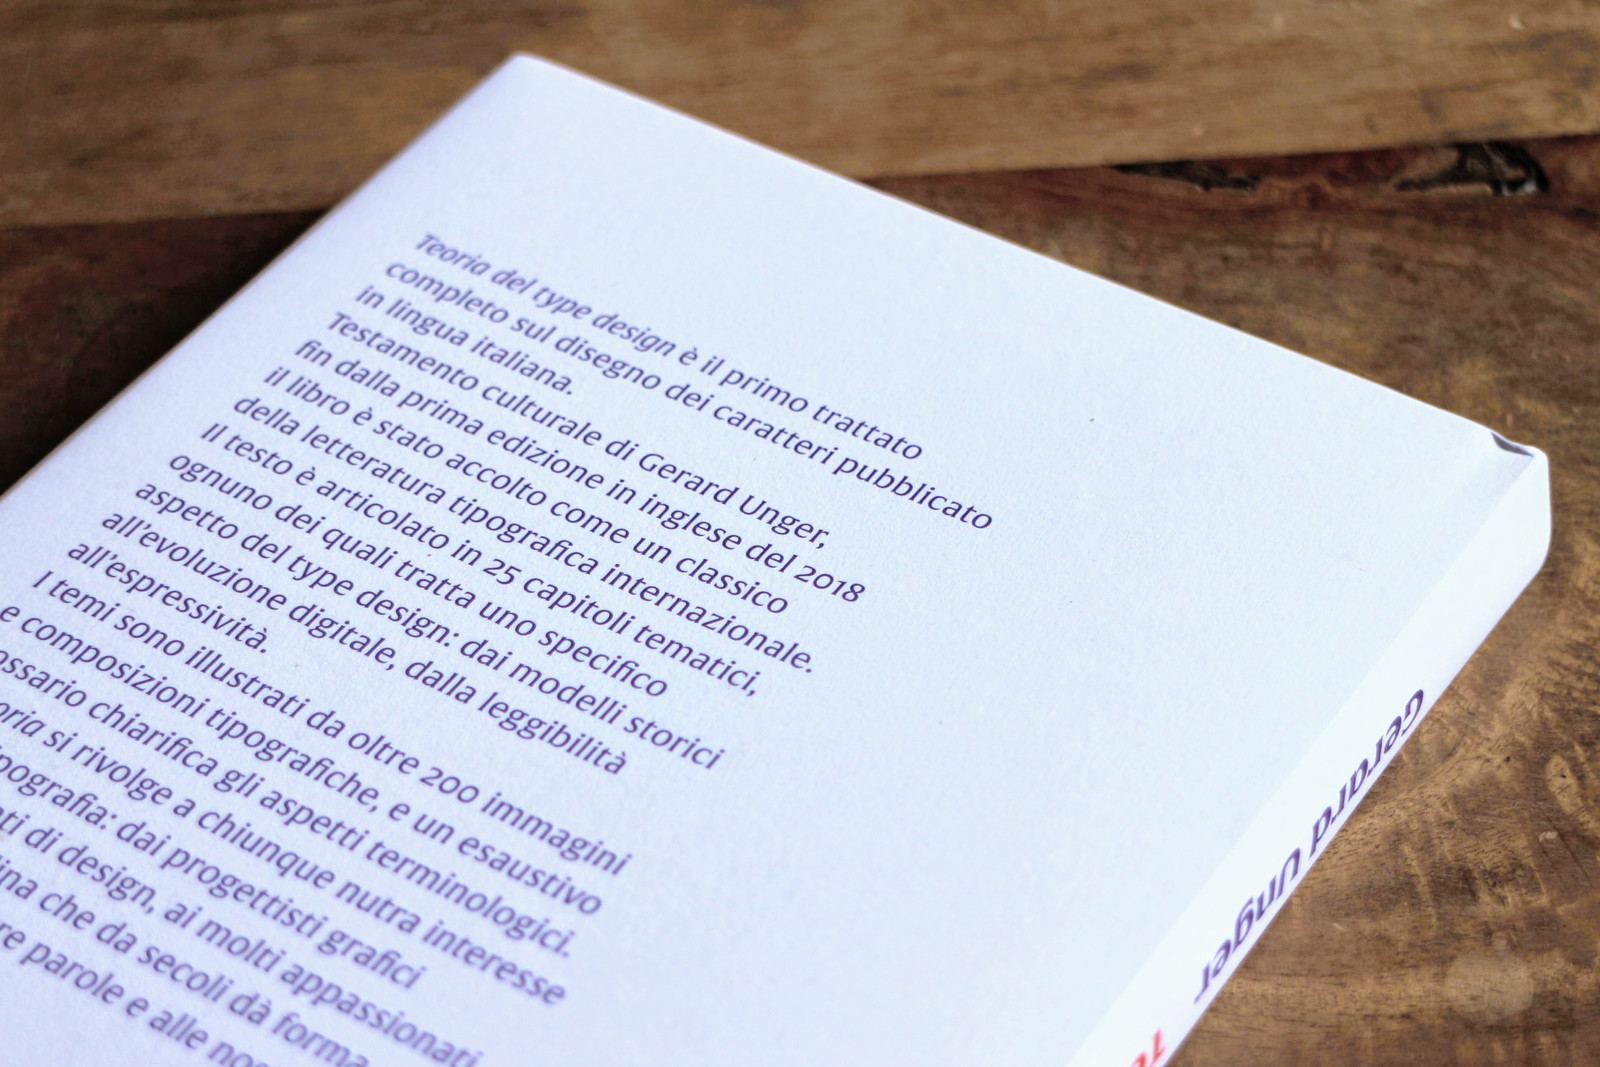 Teoria del type design è il primo trattato
completo sul disegno dei caratteri pubblicato
in lingua italiana.
Testamento culturale di Gerard Unger,
fin dalla prima edizione in inglese del 2018
il libro è stato accolto come un classico
della letteratura tipografica internazionale.
Il testo è articolato in 25 capitoli tematici,
ognuno dei quali tratta uno specifico
aspetto del type design: dai modelli storici
all'evoluzione digitale, dalla leggibilità
all'espressività.
I temi sono illustrati da oltre 200 immagini
e composizioni tipografiche, e un esaustivo
chiarifica gli aspetti terminologici.
si rivolge a chiunque nutra interesse
dai progettisti grafici
di design, ai molti appassionati
che da secoli dà forma
parole e alle
Gerard Unger